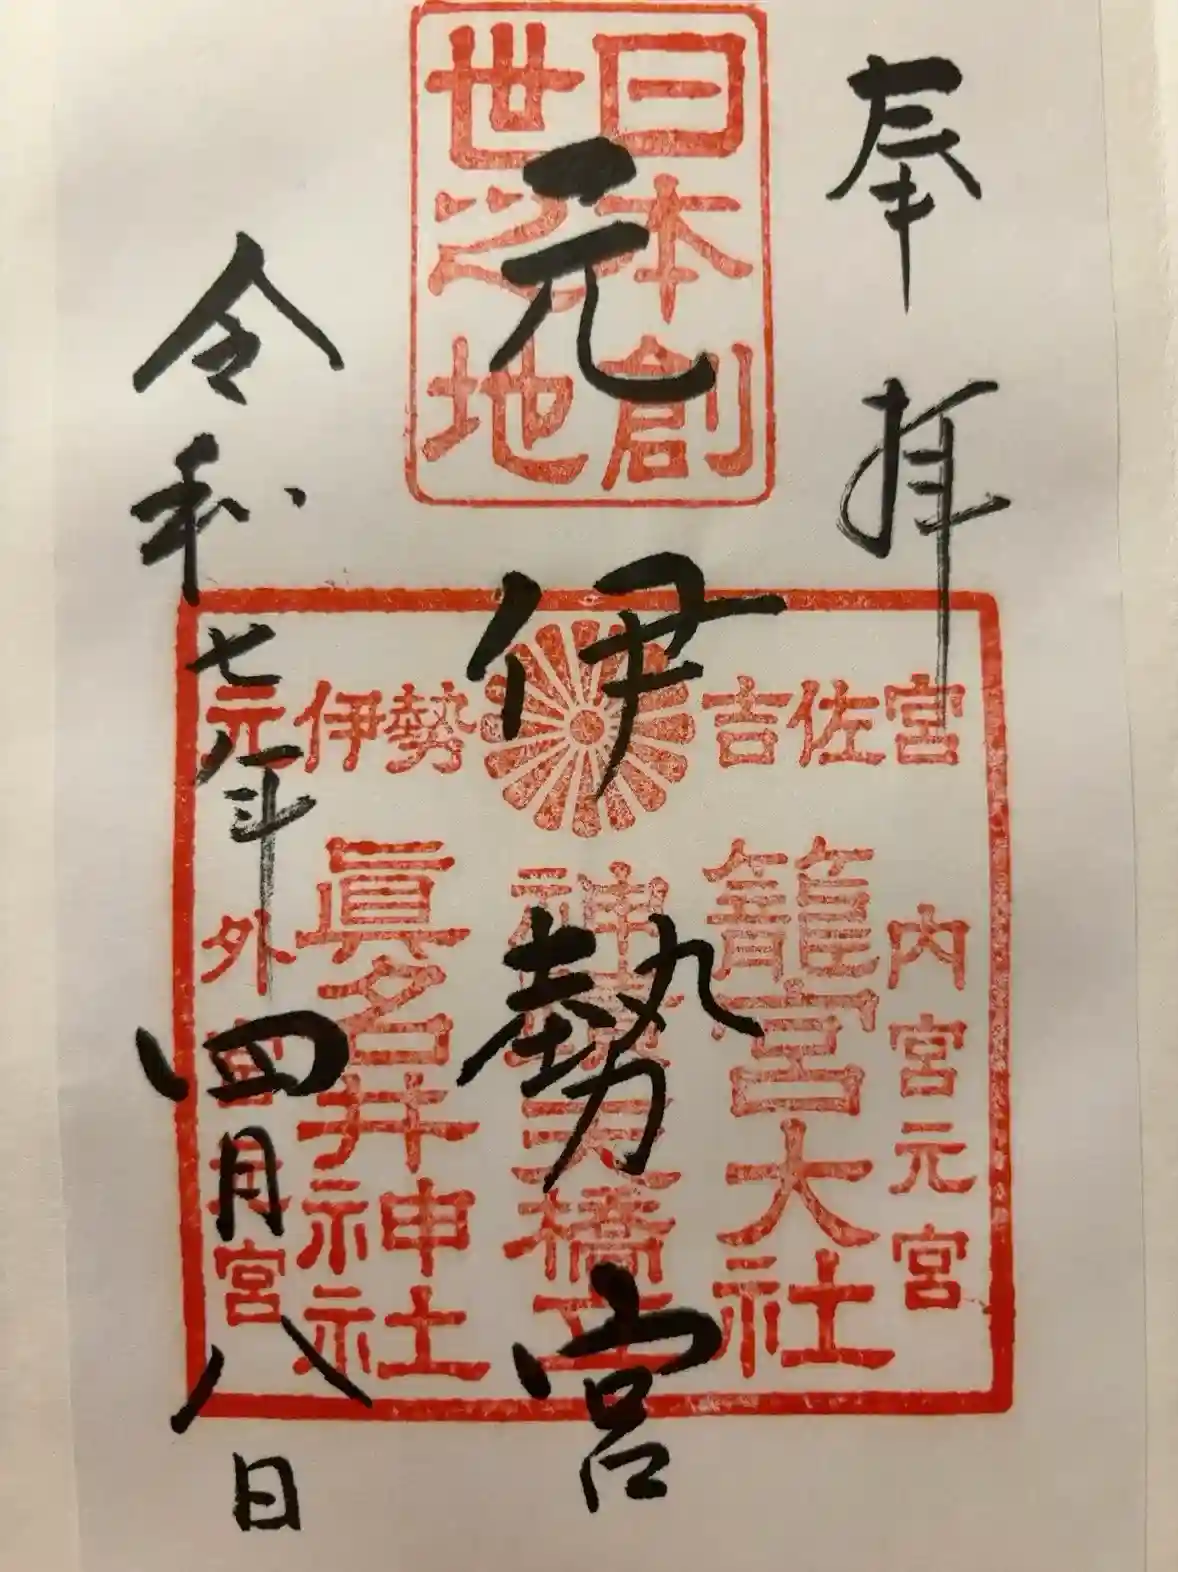 奉拝
日本創
世之地
元伊勢宮
元伊勢 吉佐宮
内宮元宮
籠宮大社
橋立
眞名井神社
外宮元宮
令和七年四月八日